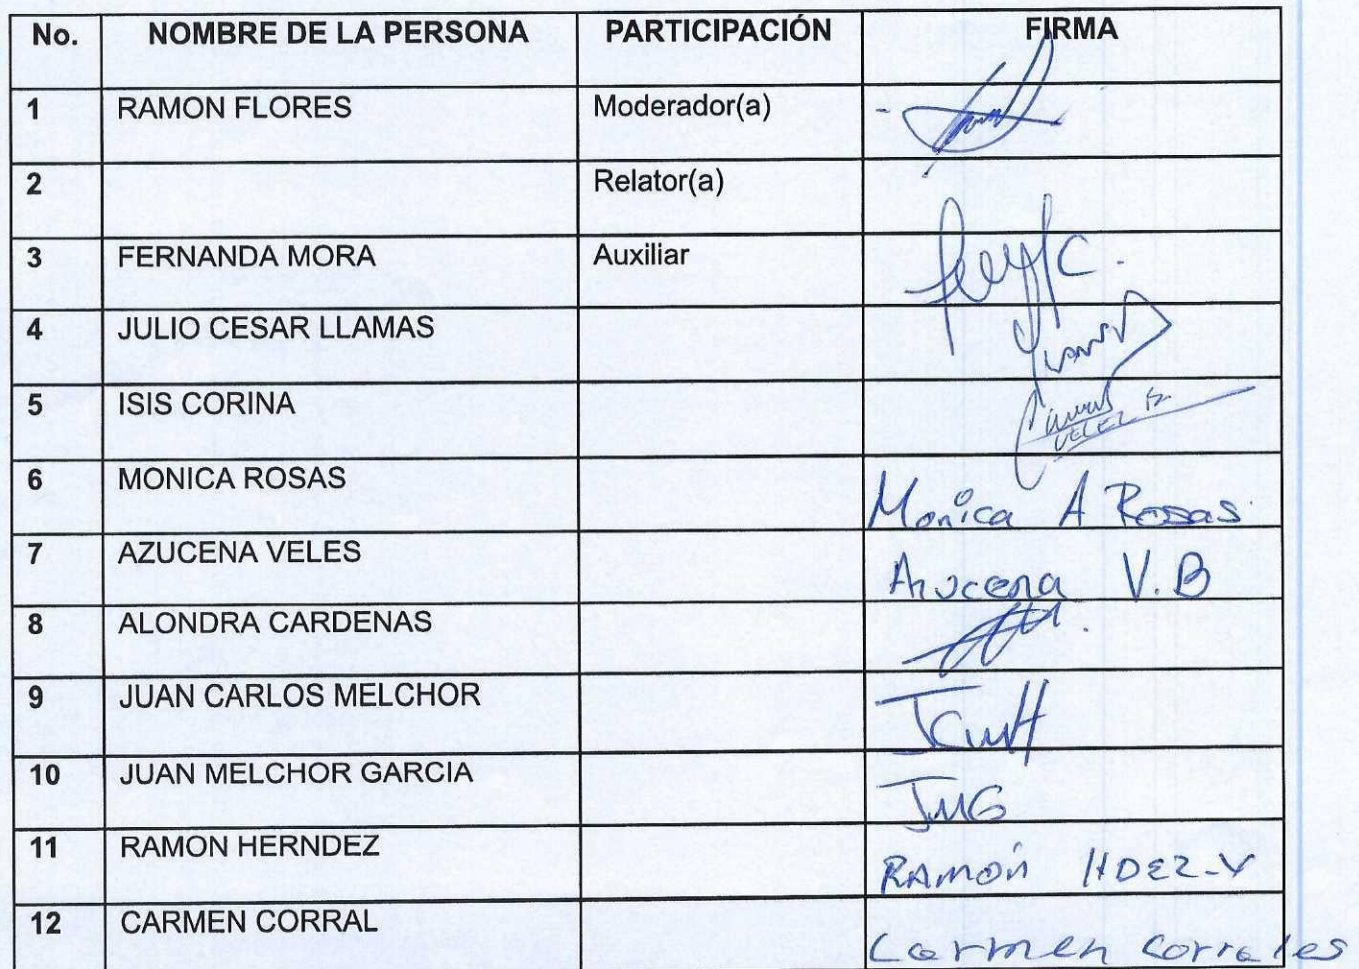 No. NOMBRE DE LA PERSONA PARTICIPACIÓN FIRMA
1 RAMON FLORES Moderador(a)
2 Relator(a)
3 FERNANDA MORA Auxiliar
4 JULIO CESAR LLAMAS
5 ISIS CORINA
VELEZ
6 MONICA ROSAS Monica A Rosas
7 AZUCENA VELES Azucena V.B
8 ALONDRA CARDENAS
9 JUAN CARLOS MELCHOR
10 JUAN MELCHOR GARCIA JMG
11 RAMON HERNDEZ RAMÓN HDEZ-V
12 CARMEN CORRAL Carmen Corrales